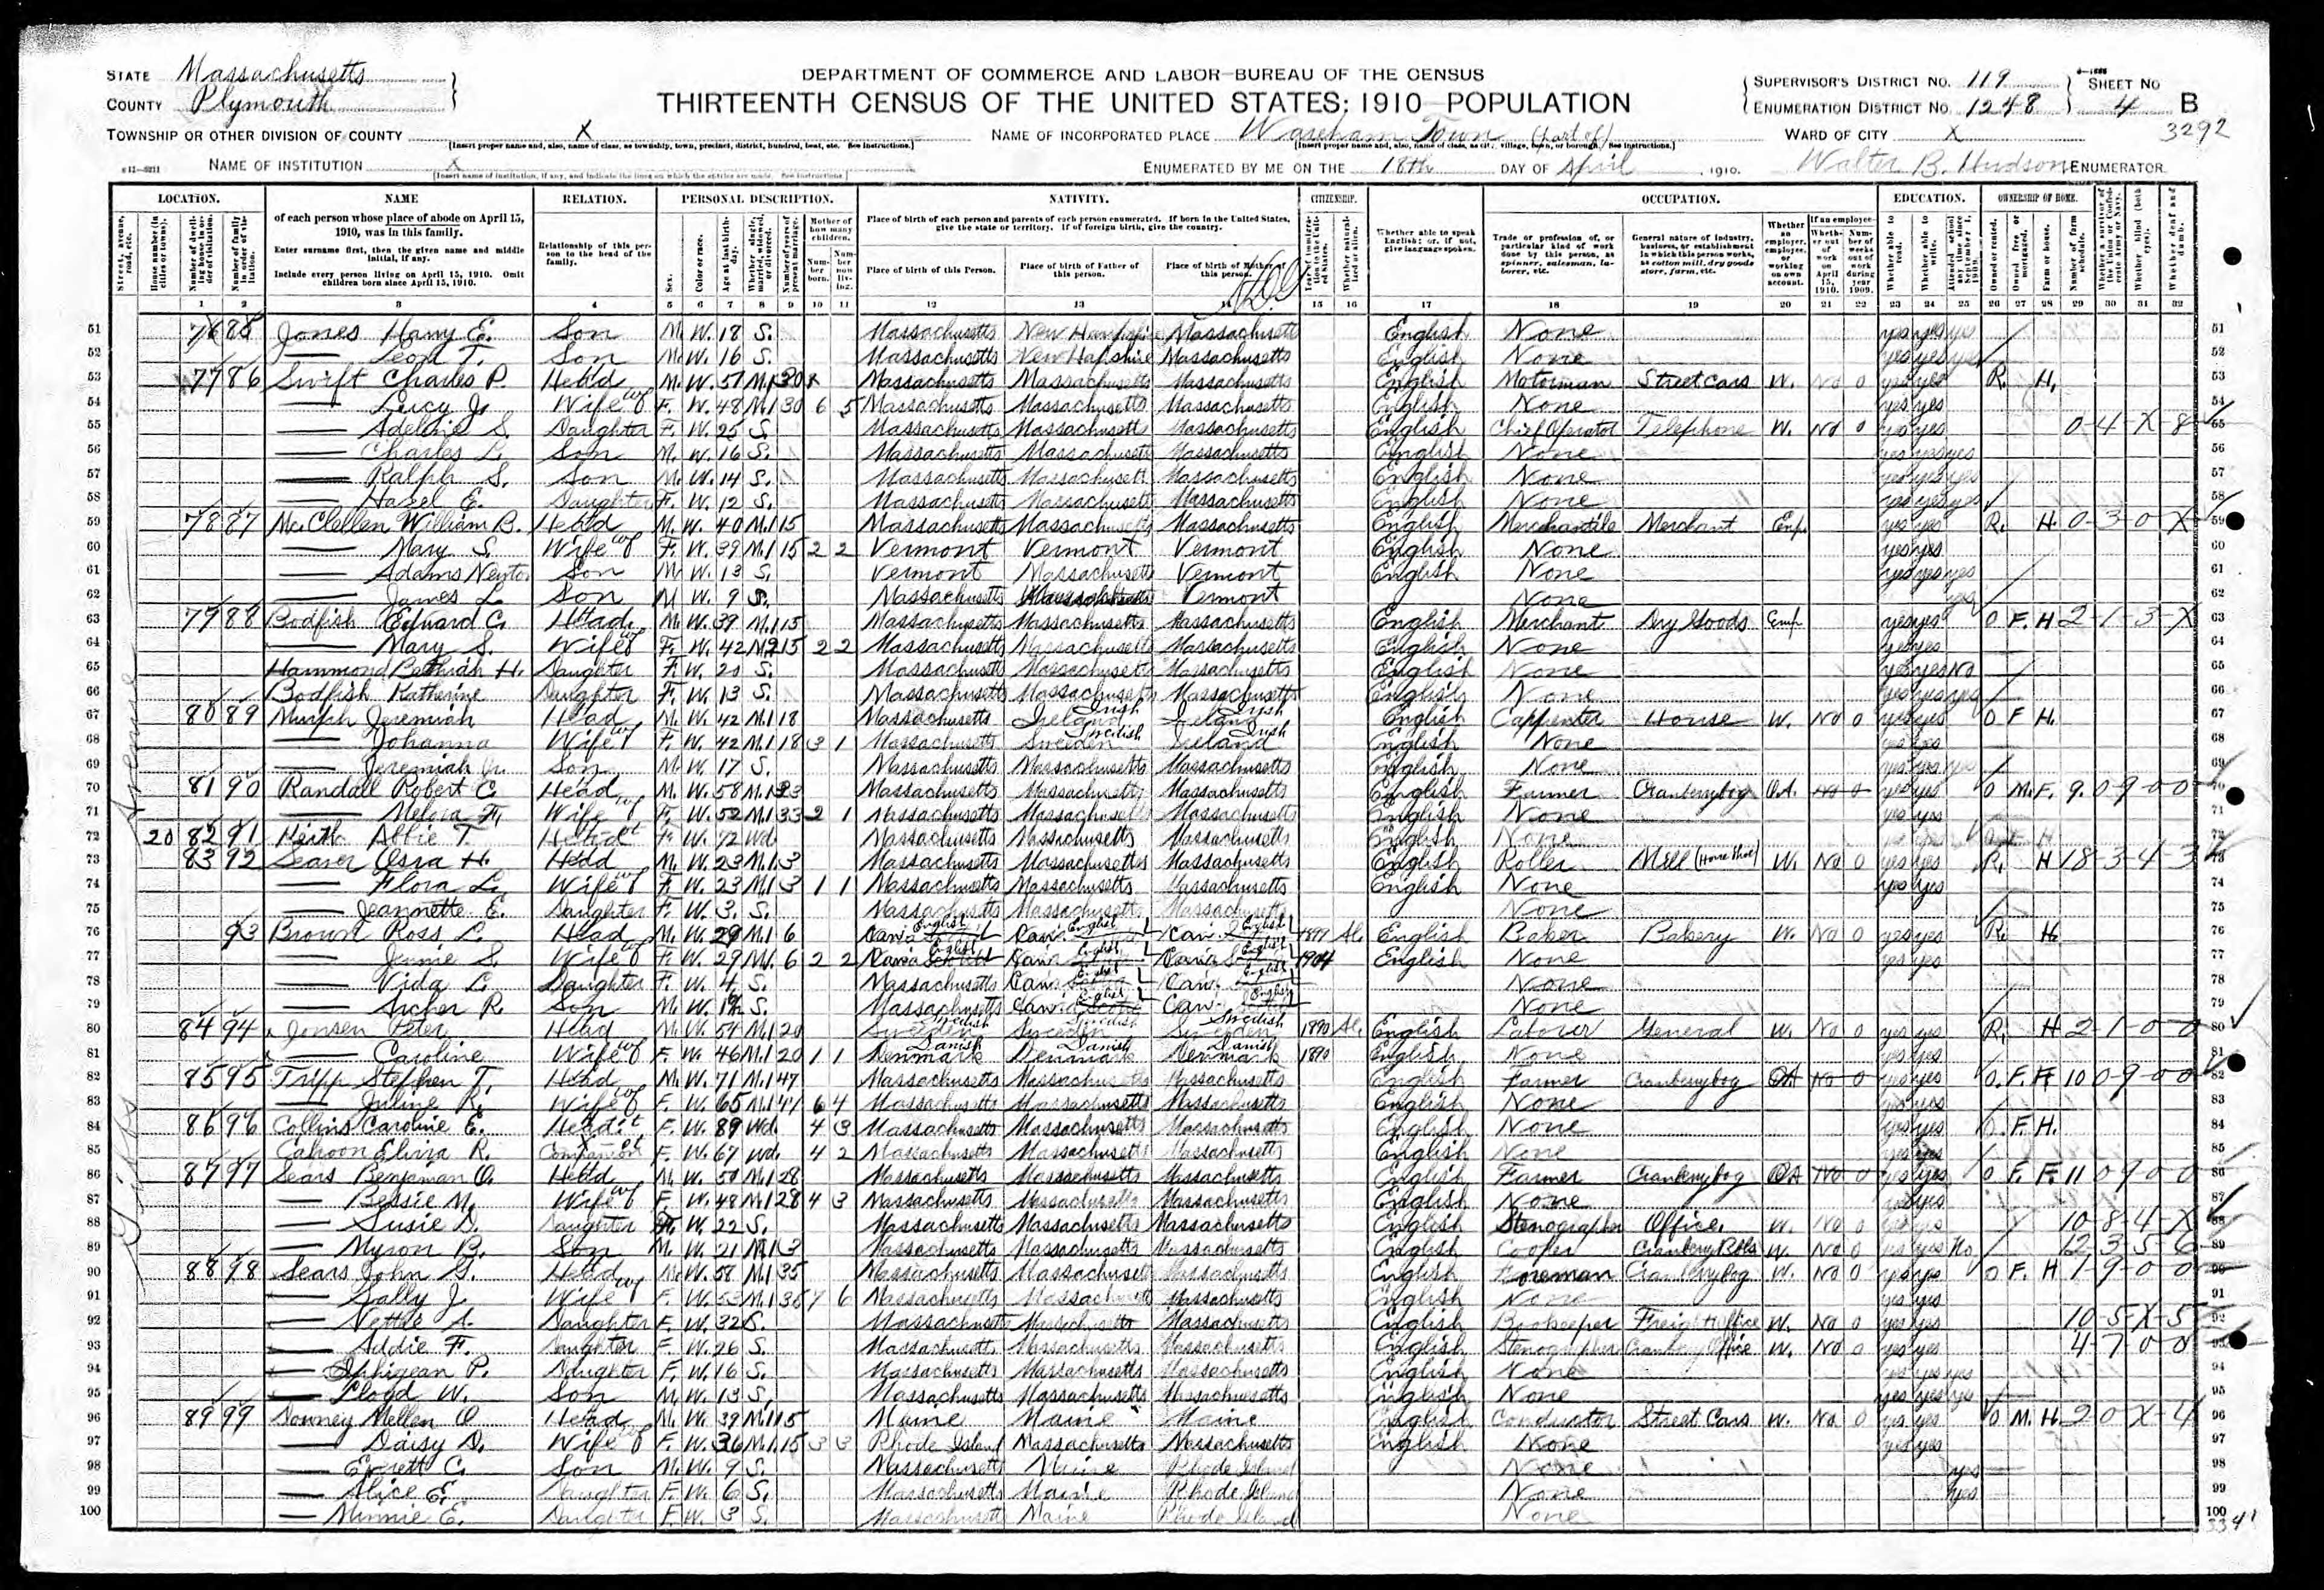 STATE Massachusetts
COUNTY Plymouth
DEPARTMENT OF COMMERCE AND LABOR—BUREAU OF THE CENSUS
THIRTEENTH CENSUS OF THE UNITED STATES: 1910—POPULATION
SUPERVISOR'S DISTRICT NO. 119 SHEET NO
ENUMERATION DISTRICT NO. 1248 4 B
3292
TOWNSHIP OR OTHER DIVISION OF COUNTY X NAME OF INCORPORATED PLACE Wareham Town (part of) WARD OF CITY X
NAME OF INSTITUTION X ENUMERATED BY ME ON THE 18th DAY OF April, 1910. Walter B. Hudson ENUMERATOR
LOCATION. NAME RELATION. PERSONAL DESCRIPTION. NATIVITY. CITIZENSHIP. OCCUPATION. EDUCATION. OWNERSHIP OF HOME.
of each person whose place of abode on April 15, 1910, was in this family.
Enter surname first, then the given name and middle initial, if any.
Include every person living on April 15, 1910. Omit children born since April 15, 1910.
Relationship of this person to the head of the family.
Place of birth of each person and parents of each person enumerated. If born in the United States, give the state or territory. If of foreign birth, give the country.
Place of birth of this Person. Place of birth of Father of this person. Place of birth of Mother of this person.
Whether able to speak English; or, if not, give language spoken.
51 76 85 Jones Harry E. Son M. W. 18 S. Massachusetts New Hampshire Massachusetts English None yes yes yes
52 — Leon T. Son M. W. 16 S. Massachusetts New Hapshire Massachusetts English None yes yes yes
53 77 86 Swift Charles P. Head M. W. 51 M.1 30 Massachusetts Massachusetts Massachusetts English Motorman Street Cars W. No 0 yes yes R. H.
54 — Lucy J. Wife F. W. 48 M.1 30 6 5 Massachusetts Massachusetts Massachusetts English None yes yes
55 — Adeline S. Daughter F. W. 25 S. Massachusetts Massachusett Massachusetts English Chief Operator Telephone W. No 0 yes yes 0-4-X-8
56 — Charles L. Son M. W. 16 S. Massachusetts Massachusetts Massachusetts English None yes yes yes
57 — Ralph S. Son M. W. 14 S. Massachusetts Massachusett Massachusetts English None yes yes yes
58 — Hazel E. Daughter F. W. 12 S. Massachusetts Massachusetts Massachusetts English None yes yes yes
59 78 87 McClellen William B. Head M. W. 40 M.1 15 Massachusetts Massachusetts Massachusetts English Merchantile Merchant Emp. yes yes R. H 0-3-0-X
60 — Mary S. Wife F. W. 39 M.1 15 2 2 Vermont Vermont Vermont English None yes yes
61 — Adams Newton Son M W. 13 S. Vermont Massachusetts Vermont English None yes yes yes
62 — James L. Son M W. 9 S. Massachusetts Massachusetts Vermont None yes
63 79 88 Bodfish Edward C. Head M. W. 39 M.1 15 Massachusetts Massachusetts Massachusetts English Merchant Dry Goods Emp yes yes O F. H 2-1-3-X
64 — Mary S. Wife F. W. 42 M2 15 2 2 Massachusetts Massachusetts Massachusetts English None yes yes
65 Hammond Bethiah H. Daughter F. W. 20 S. Massachusetts Massachusetts Massachusetts English None yes yes No
66 Bodfish Katherine Daughter F. W. 13 S. Massachusetts Massachusetts Massachusetts English None yes yes yes
67 80 89 Murph Jeremiah Head M. W. 42 M.1 18 Massachusetts Ireland Irish Ireland Irish English Carpenter House W. No 0 yes yes O F H.
68 — Johanna Wife F. W. 42 M.1 18 3 1 Massachusetts Sweeden Swedish Ireland Irish English None yes yes
69 — Jeremiah Jr. Son M W. 17 S. Massachusetts Massachusetts Massachusetts English None yes yes yes
70 81 90 Randall Robert C. Head M. W. 58 M.1 33 Massachusetts Massachusetts Massachusetts English Farmer Cranberry bog O.A. No 0 yes yes O M. F. 9. 0-9-0-0
71 — Melora F. Wife F. W. 52 M.1 33 2 1 Massachusetts Massachusetts Massachusetts English None yes yes
72 20 82 91 Keith Abbie T. Head F. W. 72 Wd Massachusetts Massachusetts Massachusetts English None O F H
73 83 92 Seaver Osra H. Head M. W. 23 M.1 3 Massachusetts Massachusetts Massachusetts English Roller Mill (Horse Shoe) W. No 0 yes yes R. H 18-3-4-3
74 — Flora L. Wife F. W. 23 M.1 3 1 1 Massachusetts Massachusetts Massachusetts English None yes yes
75 — Jeannette E. Daughter F. W. 3. S. Massachusetts Massachusetts Massachusetts None
76 93 Brown Ross L. Head M. W. 29 M.1 6 Can English Can English Can English Al. English Baker Bakery W. No 0 yes yes R. H.
77 — Jennie S. Wife F. W. 29 M1. 6 2 2 Cana English Cana English Cana English 1904 English None yes yes
78 — Vida L. Daughter F. W. 4. S. Massachusetts Can English Can English None
79 — Archer R. Son M. W. S. Massachusetts Can English Can English None
80 84 94 Jensen Peter Head M. W. 51 M.1 20 Sweden Swedish Sweeden Swedish Sweeden Swedish 1890 Al. English Laborer General W. No 0 yes yes R. H 2-1-0-0
81 — Caroline Wife F. W. 46 M.1 20 1 1 Denmark Danish Denmark Danish Denmark Danish 1890 English None yes yes
82 85 95 Tripp Stephen T. Head M. W. 71 M.1 47 Massachusetts Massachusetts Massachusetts English Farmer Cranberry bog OA No 0 yes yes O. F. F 10 0-9-0-0
83 — Juline R. Wife F. W. 65 M.1 47 6 4 Massachusetts Massachusetts Massachusetts English None yes yes
84 86 96 Collins Caroline E. Head F. W. 89 Wd. 4 3 Massachusetts Massachusetts Massachusetts English None yes yes O F. H.
85 Cahoon Elivia R. Companion F. W. 67 Wd. 4 2 Massachusetts Massachusetts Massachusetts English None yes yes
86 87 97 Sears Benjaman O. Head M. W. 50 M.1 28 Massachusetts Massachusetts Massachusetts English Farmer Cranberry bog OA No 0 yes yes O F. F. 11 0 9 0 0
87 — Bessie M. Wife F. W. 48 M.1 28 4 3 Massachusetts Massachusetts Massachusetts English None yes yes
88 — Susie D. Daughter F. W. 22 S. Massachusetts Massachusetts Massachusetts English Stenographer Office. W. No 0 yes yes 10-8-4-X
89 — Myron B. Son M. W. 21 Massachusetts Massachusetts Massachusetts English Cooper Cranberry Bbls W. No 0 yes yes No 12 3-5-6
90 88 98 Sears John G. Head M. W. 58 M.1 35 Massachusetts Massachusetts Massachusetts English Foreman Cranberry bog W. No 0 yes yes O F. H 1-9-0-0
91 — Sally J. Wife F. W. 53 M.1 35 7 6 Massachusetts Massachusetts Massachusetts English None yes yes
92 — Nettie A. Daughter F. W. 32 S. Massachusetts Massachusetts Massachusetts English Bookeeper Freight Office W. No 0 yes yes 10-5-X-5
93 — Addie F. Daughter F. W. 26 S. Massachusetts Massachusetts Massachusetts English Stenographer Cranberry Office W. No 0 yes yes 4-7-0-0
94 — Iphigean P. Daughter F. W. 16 S. Massachusetts Massachusetts Massachusetts English None yes yes yes
95 — Lloyd W. Son M. W. 13 S. Massachusetts Massachusetts Massachusetts English None yes yes yes
96 89 99 Downey Mellen O Head M. W. 39 M.1 15 Maine Maine Maine English Conductor Street Cars W. No 0 yes yes O M. H. 2-0-X-4
97 — Daisy D. Wife F. W. 36 M.1. 15 3 3 Rhode Island Massachusetts Massachusetts English None yes yes
98 — Everett C. Son M. W. 9 S. Massachusetts Maine Rhode Island None yes
99 — Alice E. Daughter F. W. 6 S. Massachusetts Maine Rhode Island None yes
100 — Minnie E. Daughter F. W. 3 S. Massachusetts Maine Rhode Island None